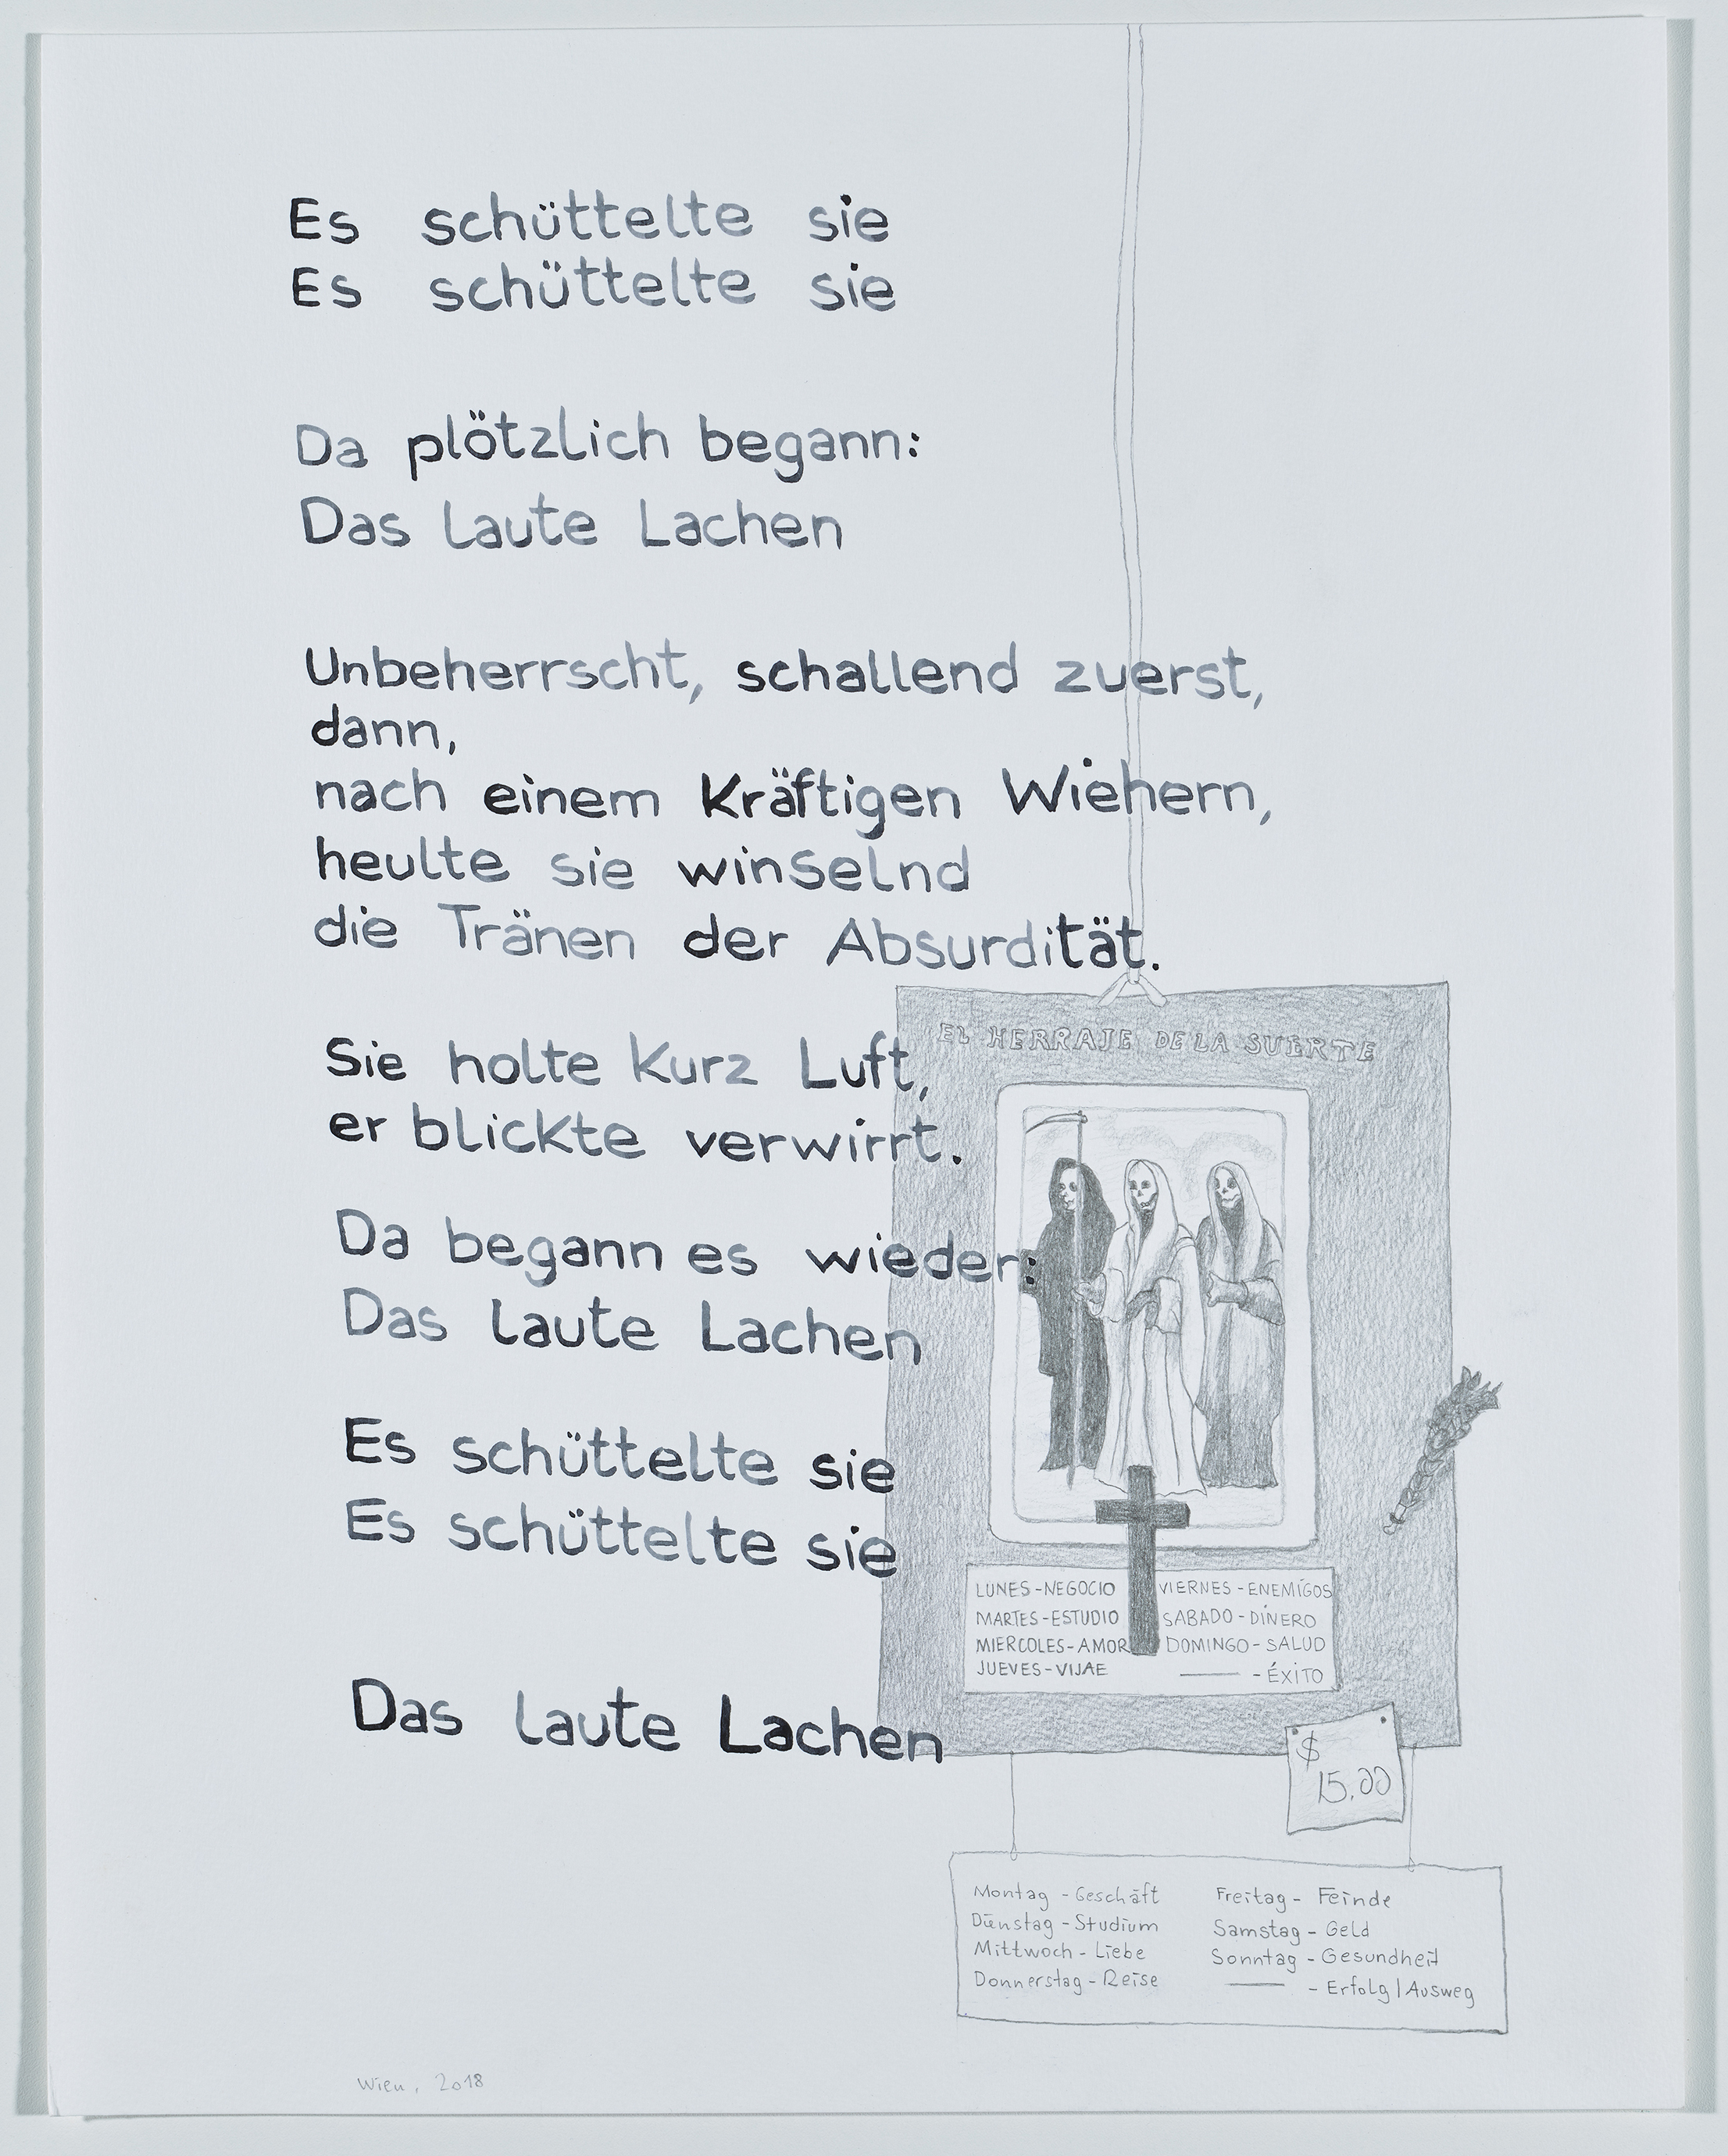 Es schüttelte sie
Es schüttelte sie
Da plötzlich begann:
Das laute Lachen
Unbeherrscht, schallend zuerst,
dann,
nach einem Kräftigen Wiehern,
heulte sie winselnd
die Tränen der Absurdität.
Sie holte Kurz Luft,
er blickte verwirrt.
Da begann es wieder:
Das laute Lachen
Es schüttelte sie
Es schüttelte sie
Das laute Lachen
EL HERRAJE DE LA SUERTE
LUNES - NEGOCIO
MARTES - ESTUDIO
MIERCOLES - AMOR
JUEVES - VIJAE
VIERNES - ENEMÍGOS
SABADO - DÍNERO
DOMINGO - SALUD
—— - ÉXITO
$
15.00
Montag - Geschäft
Dienstag - Studium
Mittwoch - Liebe
Donnerstag - Reise
Freitag - Feinde
Samstag - Geld
Sonntag - Gesundheit
—— - Erfolg | Ausweg
Wien, 2018